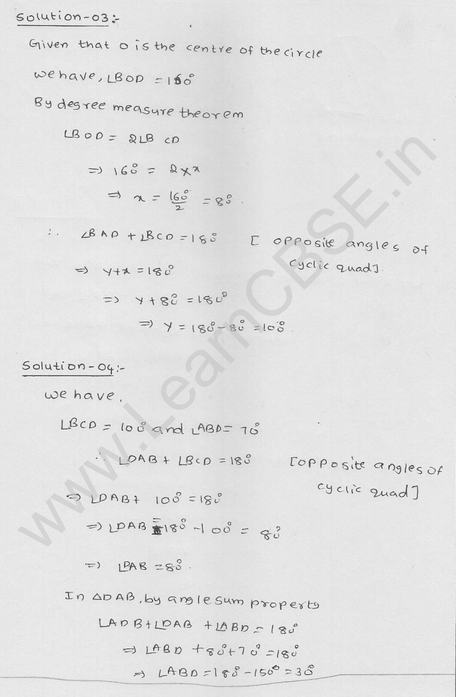 Solution-03:-
Given that O is the centre of the circle
we have, ∠BOD = 160°
By degree measure theorem
∠BOD = 2∠B CD
⇒ 160° = 2×x
⇒ x = 160°/2 = 80°
∴ ∠BAD + ∠BCD = 180° [opposite angles of
cyclic quad]
⇒ y+x = 180°
⇒ y+80° = 180°
⇒ y = 180°-80° = 100°
Solution-04:-
we have,
∠BCD = 100° and ∠ABD = 70°
∴ ∠DAB + ∠BCD = 180° [opposite angles of
cyclic quad]
⇒ ∠DAB + 100° = 180°
⇒ ∠DAB = 180° - 100° = 80°
⇒ ∠DAB = 80°
In ΔDAB, by angle sum property
∠ADB + ∠DAB + ∠ABD = 180°
⇒ ∠ABD + 80° + 70° = 180°
⇒ ∠ABD = 180° - 150° = 30°
www.LearnCBSE.in